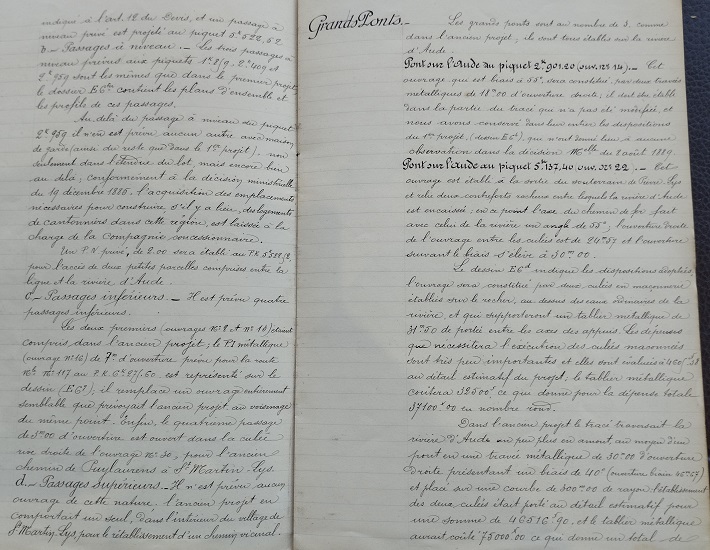 indiqué à l'art. 12 du Devis, et un passage à
niveau privé est projeté au piquet 5k 528,52.
b._ Passages à niveau._ Les trois passages à
niveau prévus aux piquets 1k 819_ 2k 409 et
2k 959 sont les mêmes que dans le premier projet
le dossier E6 contient les plans d'ensemble et
les profils de ces passages.
Au delà du passage à niveau du piquet
2k 959 il n'en est prévu aucun autre avec maison
de garde (ainsi du reste que dans le 1er projet) _ non
seulement dans l'étendue du lot, mais encore bien
au delà, conformément à la décision ministérielle
du 19 décembre 1886. l'acquisition des emplacements
nécessaires pour construire, s'il y a lieu, des logements
de cantonniers dans cette région, est laissée à la
charge de la Compagnie concessionnaire.
Un P. N. privé, de 2.00 sera établi au P.K 5k 528,52
pour l'accès de deux petites parcelles comprises entre la
ligne et la rivière d'Aude.
c._ Passages inférieurs._ Il est prévu quatre
passages inférieurs.
Les deux premiers (ouvrages No 8 et No 10) étaient
compris dans l'ancien projet; le P.I métallique
(ouvrage No 16) de 7m d'ouverture prévu pour la route
Nle No 117 au P.K. est représenté sur le
dessin (E6); il remplace un ouvrage entièrement
semblable que prévoyait l'ancien projet au voisinage
du même point. Enfin, le quatrième passage
de 3m00 d'ouverture est ouvert dans la culée
rive droite de l'ouvrage No 30, pour l'ancien
chemin de Puylaurens à St Martin-Lys.
d._ Passages Supérieurs._ Il n'est prévu aucun
ouvrage de cette nature. l'ancien projet en
comportait un seul, dans l'intérieur du village de
St Martin-Lys, pour le rétablissement d'un chemin vicinal.
Grands Ponts._
Les grands ponts sont au nombre de 3. comme
dans l'ancien projet; ils sont tous établis sur la rivière
d'Aude.
Pont sur l'Aude au piquet 2k 901.20 (ouv. No 14)._ Cet
ouvrage qui est biais à 55°, sera constitué par deux travées
métalliques de 18m00 d'ouverture droite; il doit être établi
dans la partie du tracé qui n'a pas été modifiée, et
nous avons conservé dans leur entier les dispositions
du 1er projet, (dessin E6), qui n'ont donné lieu à aucune
observation dans la décision Mlle du 8 août 1889.
Pont sur l'Aude au piquet 5k 137,40 (ouv. No 22._ Cet
ouvrage est établi à la sortie du souterrain de Pierre-Lys
et relie deux contreforts rocheux entre lesquels la rivière d'Aude
est encaissée; en ce point l'axe du chemin de fer fait
avec celui de la rivière un angle de 55°; l'ouverture droite
de l'ouvrage entre les culées est de 24m57 et l'ouverture
suivant le biais s'élève à 30m00.
Le dessin E6 indique les dispositions adoptées,
l'ouvrage sera constitué par deux culées en maçonnerie
établies sur le rocher, au dessus des eaux ordinaires de la
rivière, et qui supporteront un tablier métallique de
31m50 de portée entre les axes des appuis. Les dépenses
que nécessitera l'exécution des culées maçonnées
sont très peu importantes et elles sont évaluées à
au détail estimatif du projet; le tablier métallique
coûtera 32500f ce qui donne pour la dépense totale
37100f00 en nombre rond.
Dans l'ancien projet le tracé traversait la
rivière d'Aude un peu plus en amont, au moyen d'un
pont en une travée métallique de 30m00 d'ouverture
droite présentant un biais de 40° (ouverture biaise )
et placé sur une courbe de 300m00 de rayon l'établissement
des deux culées était porté au détail estimatif pour
une somme de 46516.90, et le tablier métallique
aurait coûté 75000.00 ce qui donne un total _ de